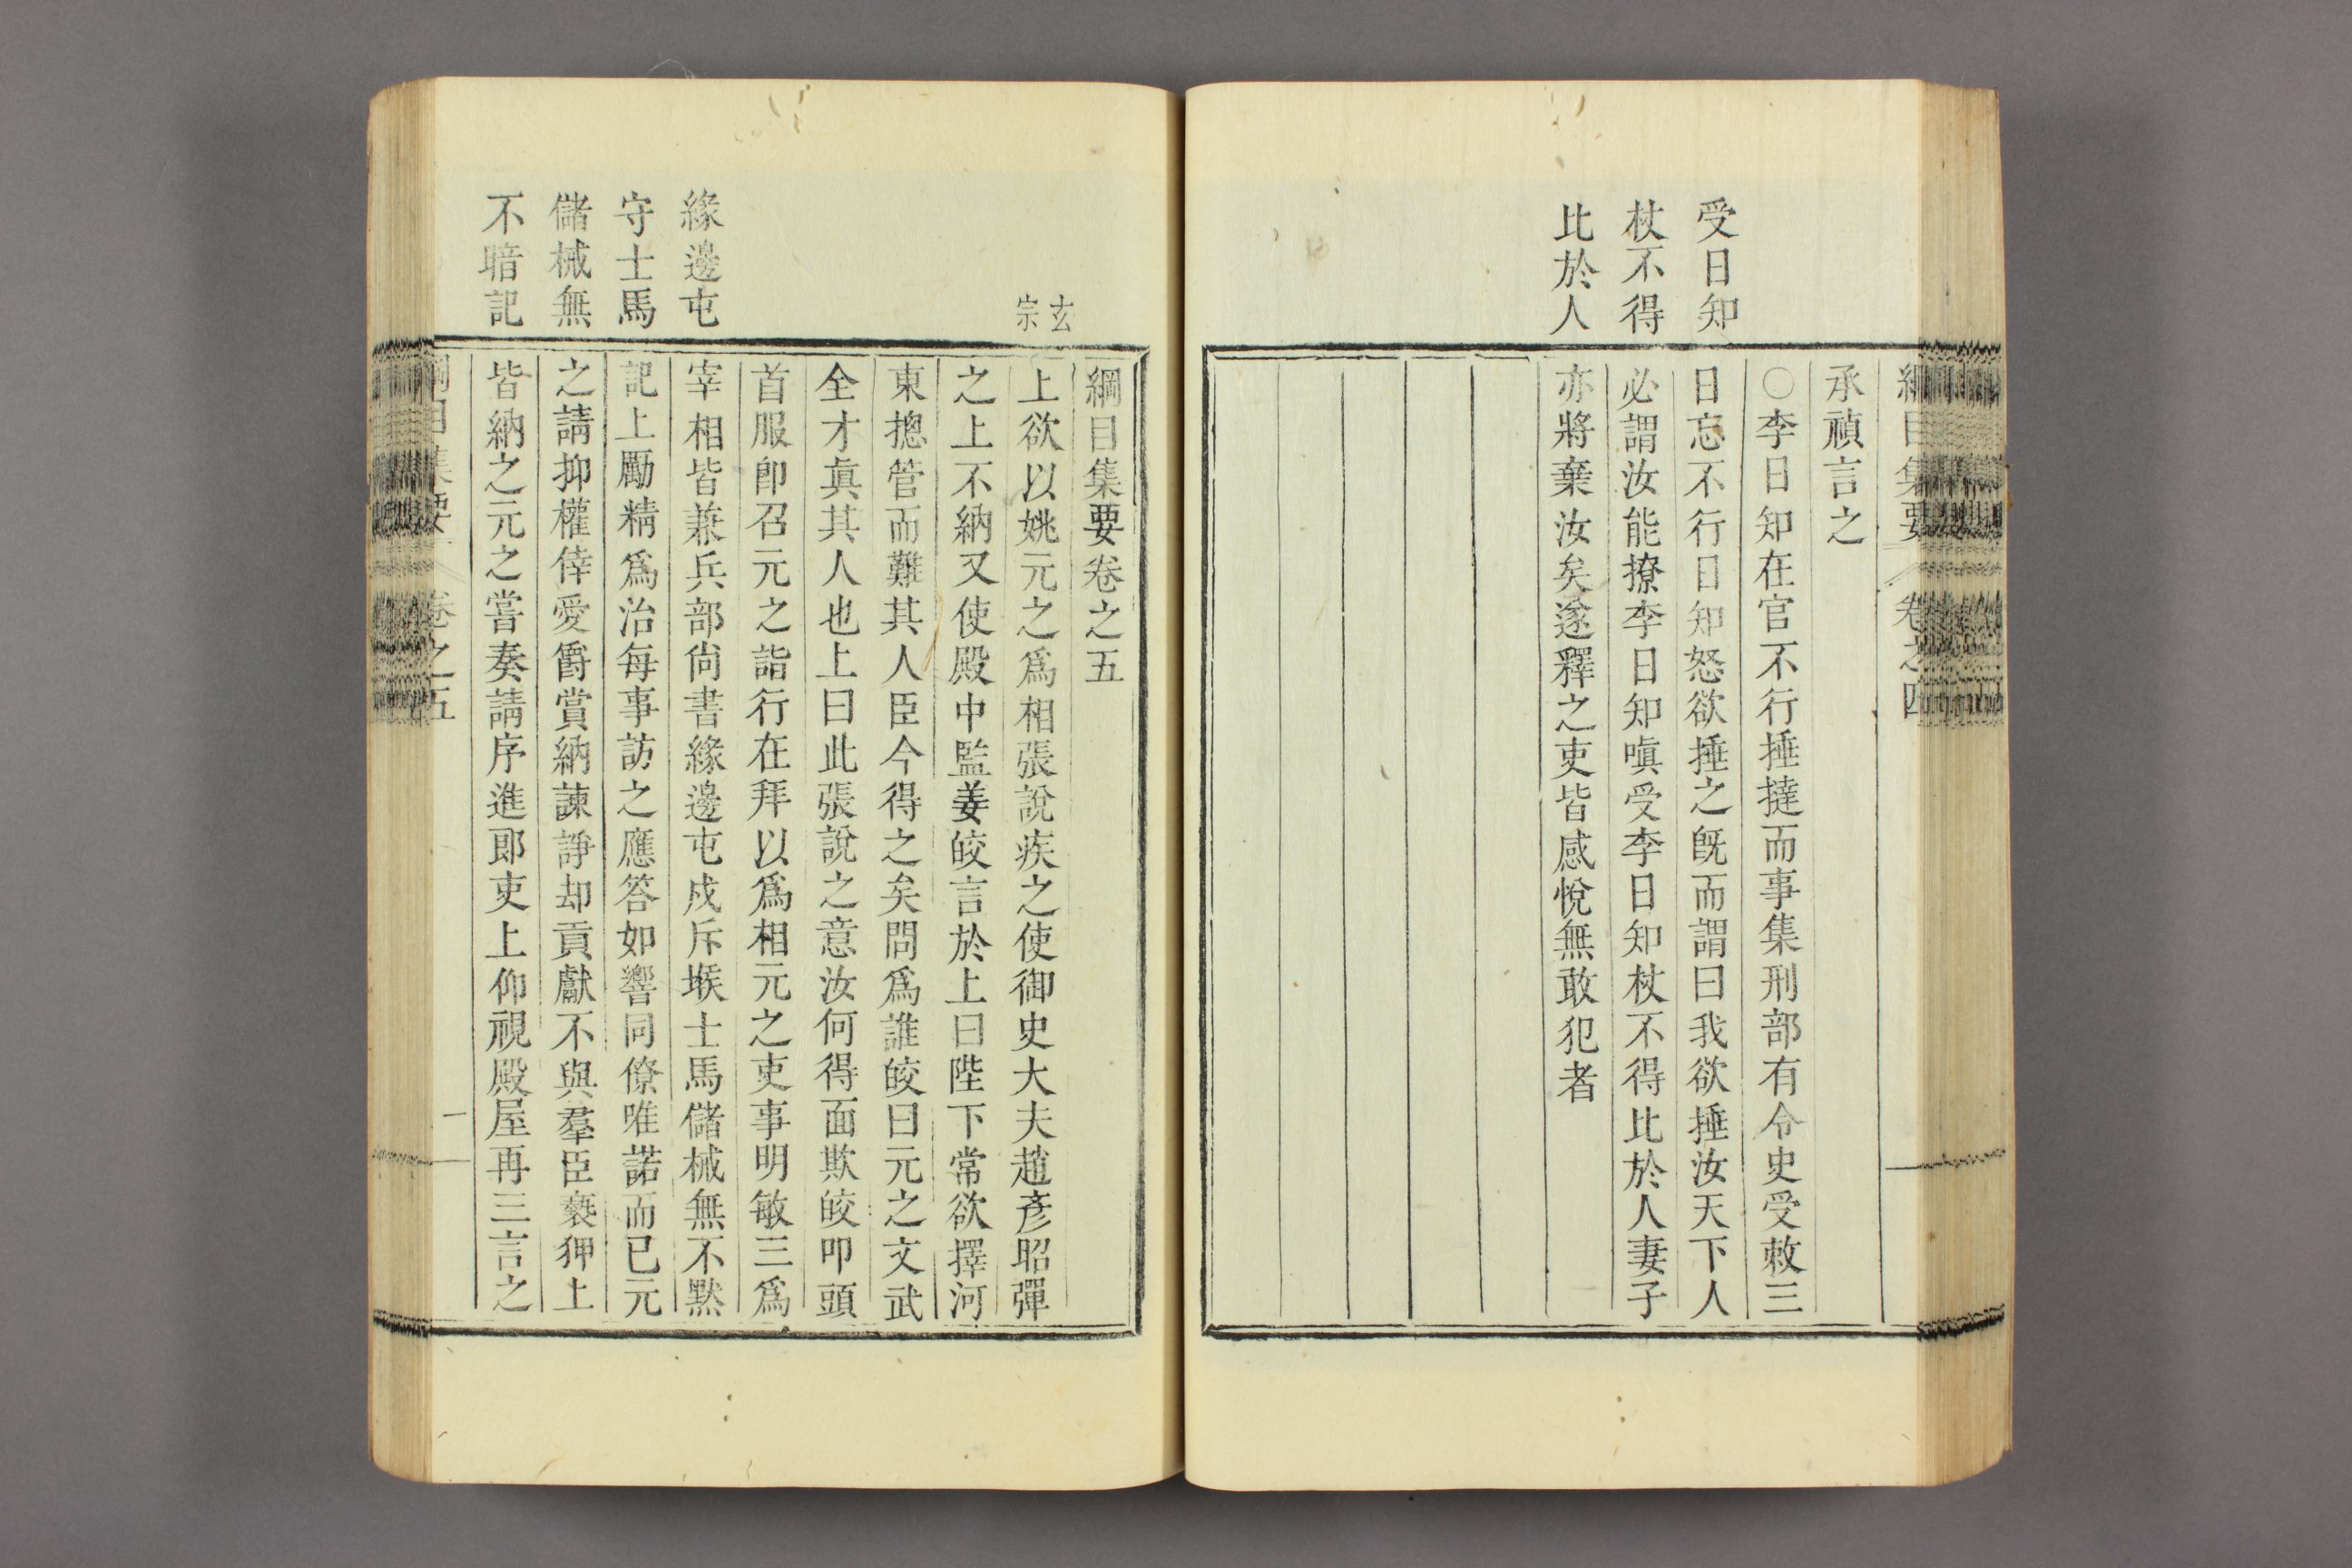 受日知
杖不得
比於人
綱目集要 卷之四
承禎言之
○李日知在官不行捶撻而事集刑部有令史受敕三
日忘不行日知怒欲捶之旣而謂曰我欲捶汝天下人
必謂汝能撩李日知嗔受李日知杖不得比於人妻子
亦將棄汝矣遂釋之吏皆感悅無敢犯者
玄宗
緣邊屯
守士馬
儲械無
不暗記
綱目集要卷之五
上欲以姚元之爲相張說疾之使御史大夫趙彥昭彈
之上不納又使殿中監姜皎言於上曰陛下常欲擇河
東摠管而難其人臣今得之矣問爲誰皎曰元之文武
全才眞其人也上曰此張說之意汝何得面欺皎叩頭
首服卽召元之詣行在拜以爲相元之吏事明敏三爲
宰相皆兼兵部尙書緣邊屯戍斥堠士馬儲械無不默
記上勵精爲治每事訪之應答如響同僚唯諾而已元
之請抑權倖愛爵賞納諫諍却貢獻不與羣臣褻狎上
皆納之元之嘗奏請序進郎吏上仰視殿屋再三言之
綱目集要 卷之五
一